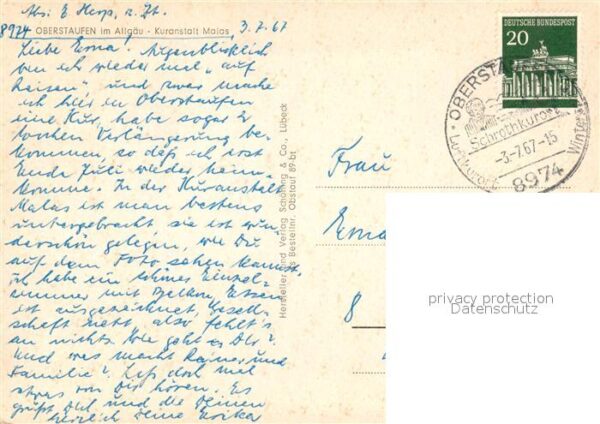 Abs: E. Herp, z. Zt.
8974 OBERSTAUFEN im Allgäu - Kuranstalt Malas, 3.7.67
Liebe Erna! Augenblicklich
bin ich wieder mal „auf
Reisen" und zwar mache
ich hier in Oberstaufen
eine Kur, habe sogar 2
Wochen Verlängerung be-
kommen, so daß ich erst
Ende Juli wieder heim-
komme. In der Kuranstalt
Malas ist man bestens
untergebracht, sie ist wun-
derschön gelegen, wie Du
auf dem Foto sehen kannst.
Ich habe ein schönes Einzel-
zimmer mit Balkon, Essen
ist ausgezeichnet, Gesell-
schaft nett, also fehlt's
an nichts. Wie geht es Dir?
Und was macht Rainer und
Familie? Laß doch mal
etwas von Dir hören. Es
grüßt Dich und die Deinen
herzlich Deine Erika
Hersteller und Verlag Schöning & Co., Lübeck
Bestellnr. Obstauf 89 bt
DEUTSCHE BUNDESPOST
20
OBERSTAUFEN
Schrothkurort
-3.-7.67-15
Luftkurort
Winters
8974
Frau
Erna
8
privacy protection
Datenschutz